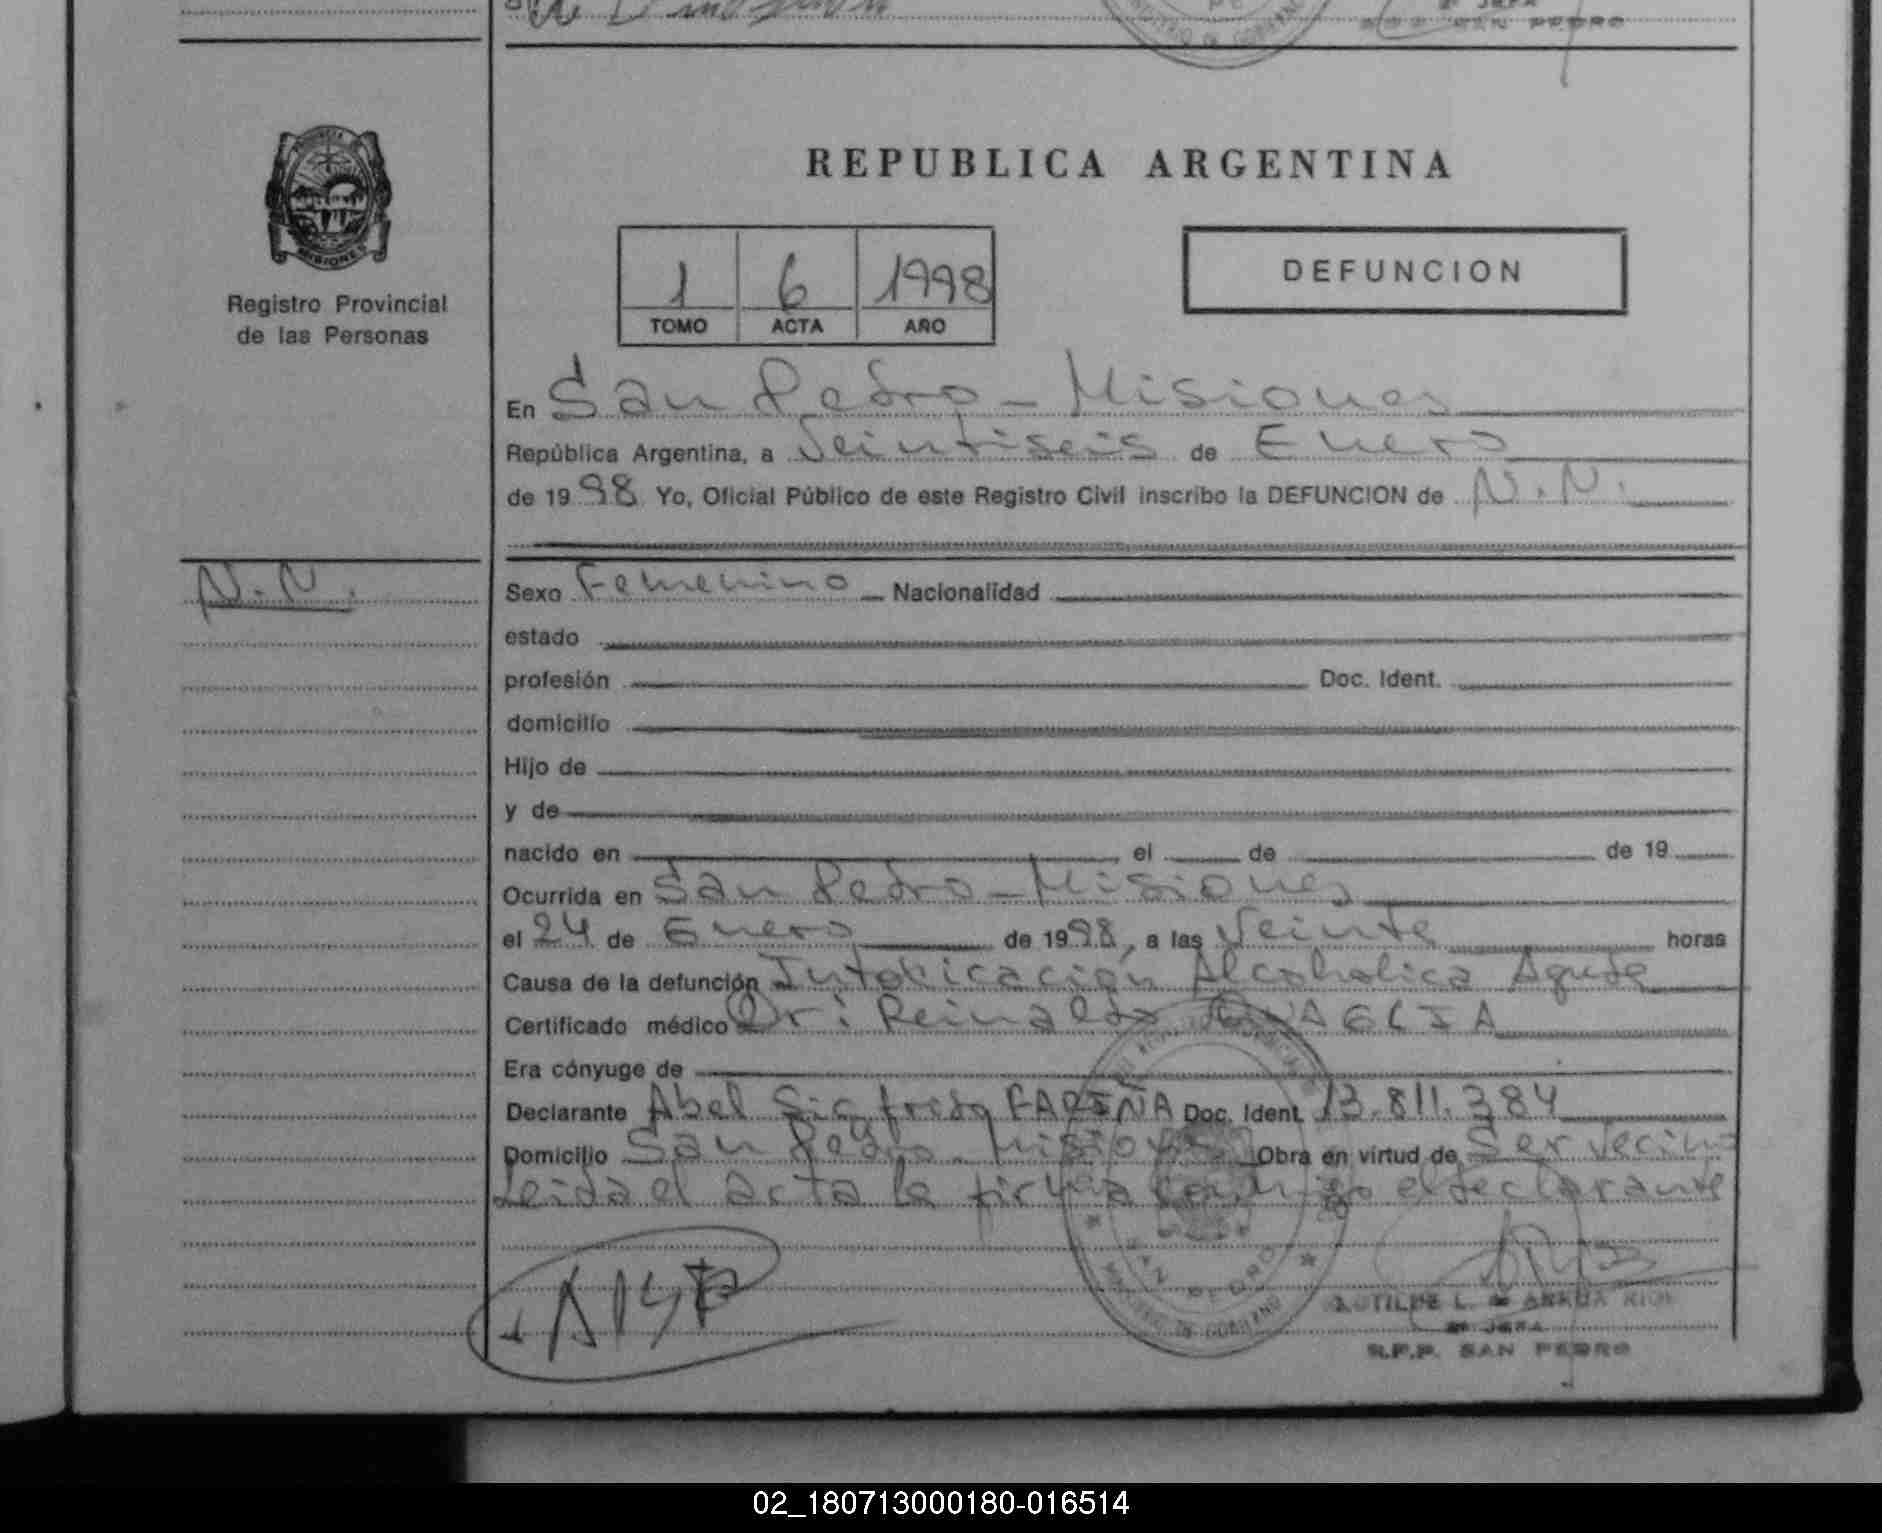 2ª JEFA
R.P.P. SAN PEDRO
PROVINCIA DE
MISIONES
Registro Provincial
de las Personas
REPUBLICA ARGENTINA
1 6 1998
TOMO ACTA AÑO
DEFUNCION
En San Pedro - Misiones
República Argentina, a Veintiseis de Enero
de 1998 Yo, Oficial Público de este Registro Civil inscribo la DEFUNCION de N.N.
N.N.
Sexo Femenino Nacionalidad
estado
profesión Doc. Ident.
domicilio
Hijo de
y de
nacido en el de de 19
Ocurrida en San Pedro - Misiones
el 24 de Enero de 1998, a las Veinte horas
Causa de la defunción Intoxicación Alcoholica Aguda
Certificado médico Dr: Reinaldo QUAGLIA
Era cónyuge de
Declarante Abel Sigfredo FARIÑA Doc. Ident. 13.811.384
Domicilio San Pedro - Misiones Obra en virtud de Ser vecino
Leida el acta la firma conmigo el declarante
SAN PEDRO
MINISTERIO DE GOBIERNO
CLOTILDE L. de
2ª JEFA
R.P.P. SAN PEDRO
02_180713000180-016514